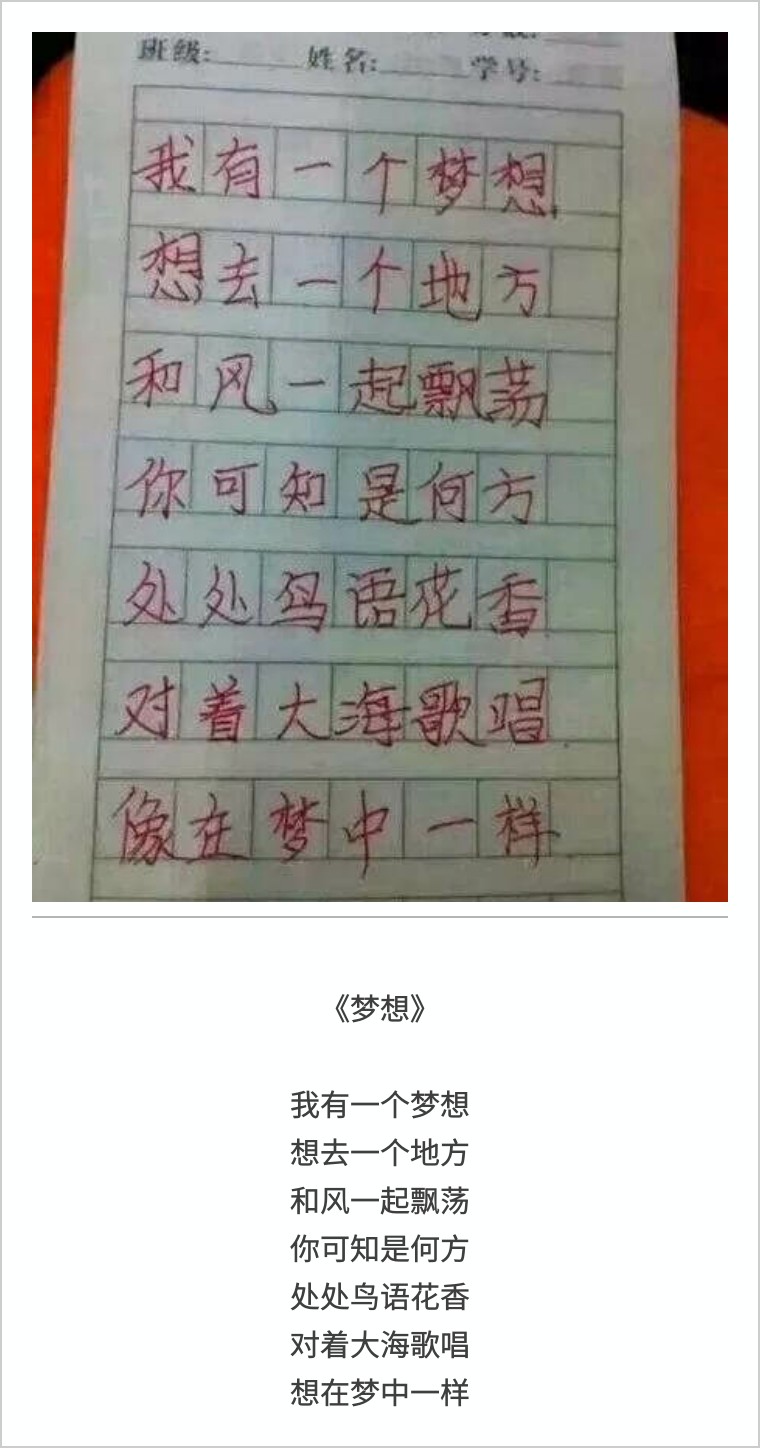 班级: 姓名: 学号:
我有一个梦想
想去一个地方
和风一起飘荡
你可知是何方
处处鸟语花香
对着大海歌唱
像在梦中一样
《梦想》
我有一个梦想
想去一个地方
和风一起飘荡
你可知是何方
处处鸟语花香
对着大海歌唱
想在梦中一样